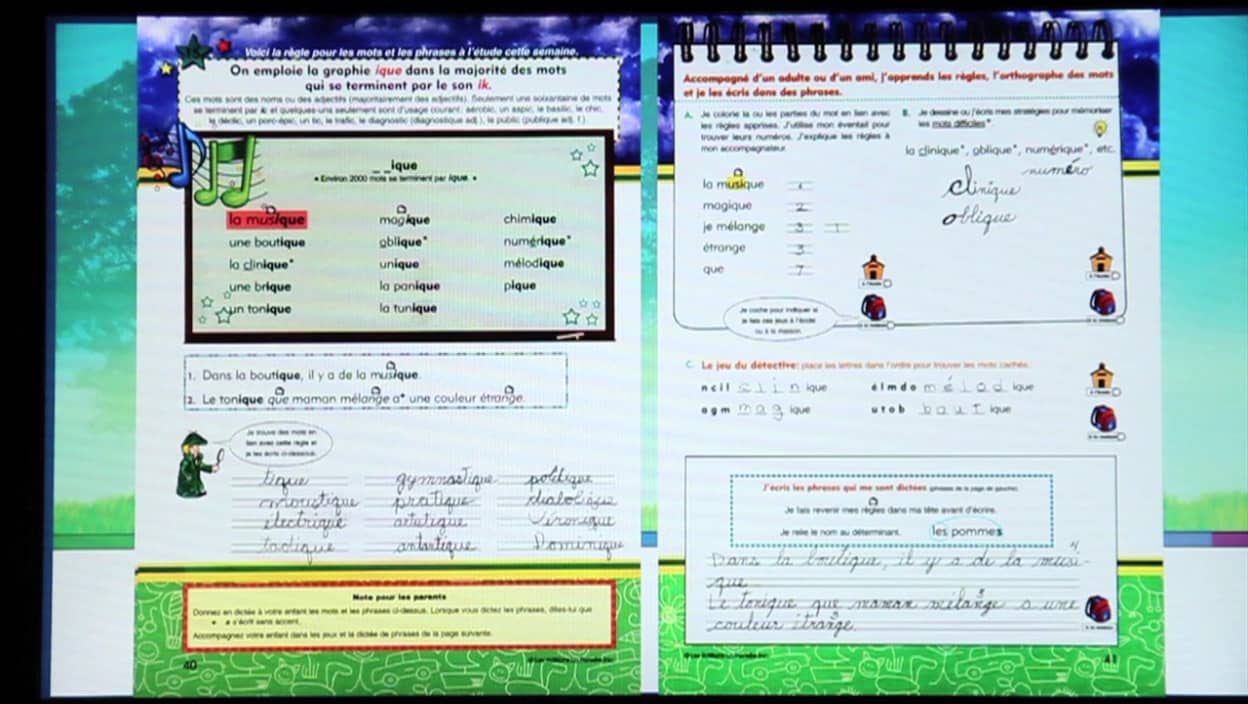 Voici la règle pour les mots et les phrases à l'étude cette semaine.
On emploie la graphie ique dans la majorité des mots
qui se terminent par le son ik.
Ces mots sont des noms ou des adjectifs (majoritairement des adjectifs). Seulement une soixantaine de mots
se terminent par ic et quelques-uns seulement sont d'usage courant: aérobic, un aspic, le basilic, le chic,
le déclic, un porc-épic, un tic, le trafic, le diagnostic (diagnostique adj.), le public (publique adj. f.)
_ _ique
• Environ 2000 mots se terminent par ique. •
la musique magique chimique
une boutique oblique* numérique*
la clinique* unique mélodique
une brique la panique pique
un tonique la tunique
1. Dans la boutique, il y a de la musique.
2. Le tonique que maman mélange a* une couleur étrange.
Je trouve des mots en
lien avec cette règle et
je les écris ci-dessous.
tique gymnastique politique
moustique pratique diabolique
électrique artistique Véronique
tactique antartique Dominique
Note pour les parents
Donnez en dictée à votre enfant les mots et les phrases ci-dessus. Lorsque vous dictez les phrases, dites-lui que
• a s'écrit sans accent.
Accompagnez votre enfant dans les jeux et la dictée de phrases de la page suivante.
40
Accompagné d'un adulte ou d'un ami, j'apprends les règles, l'orthographe des mots
et je les écris dans des phrases.
A. Je colorie la ou les parties du mot en lien avec
les règles apprises. J'utilise mon éventail pour
trouver leurs numéros. J'explique les règles à
mon accompagnateur.
la musique
magique 2
je mélange 3 1
étrange 3
que 7
B. Je dessine ou j'écris mes stratégies pour mémoriser
les mots difficiles*
la clinique*, oblique*, numérique*, etc.
numéro
clinique
oblique
Je coche pour indiquer si
je fais ces jeux à l'école
ou à la maison.
C. Le jeu du détective: place les lettres dans l'ordre pour trouver les mots cachés.
n c i l c l i n ique é l m d o m é l o d ique
a g m m a g ique u t o b b o u t ique
J'écris les phrases qui me sont dictées
Je fais revenir mes règles dans ma tête avant d'écrire.
Je relie le nom au déterminant. les pommes
Dans la boutique, il y a de la musi-
que
Le tonique que maman mélange a une
couleur étrange.
41